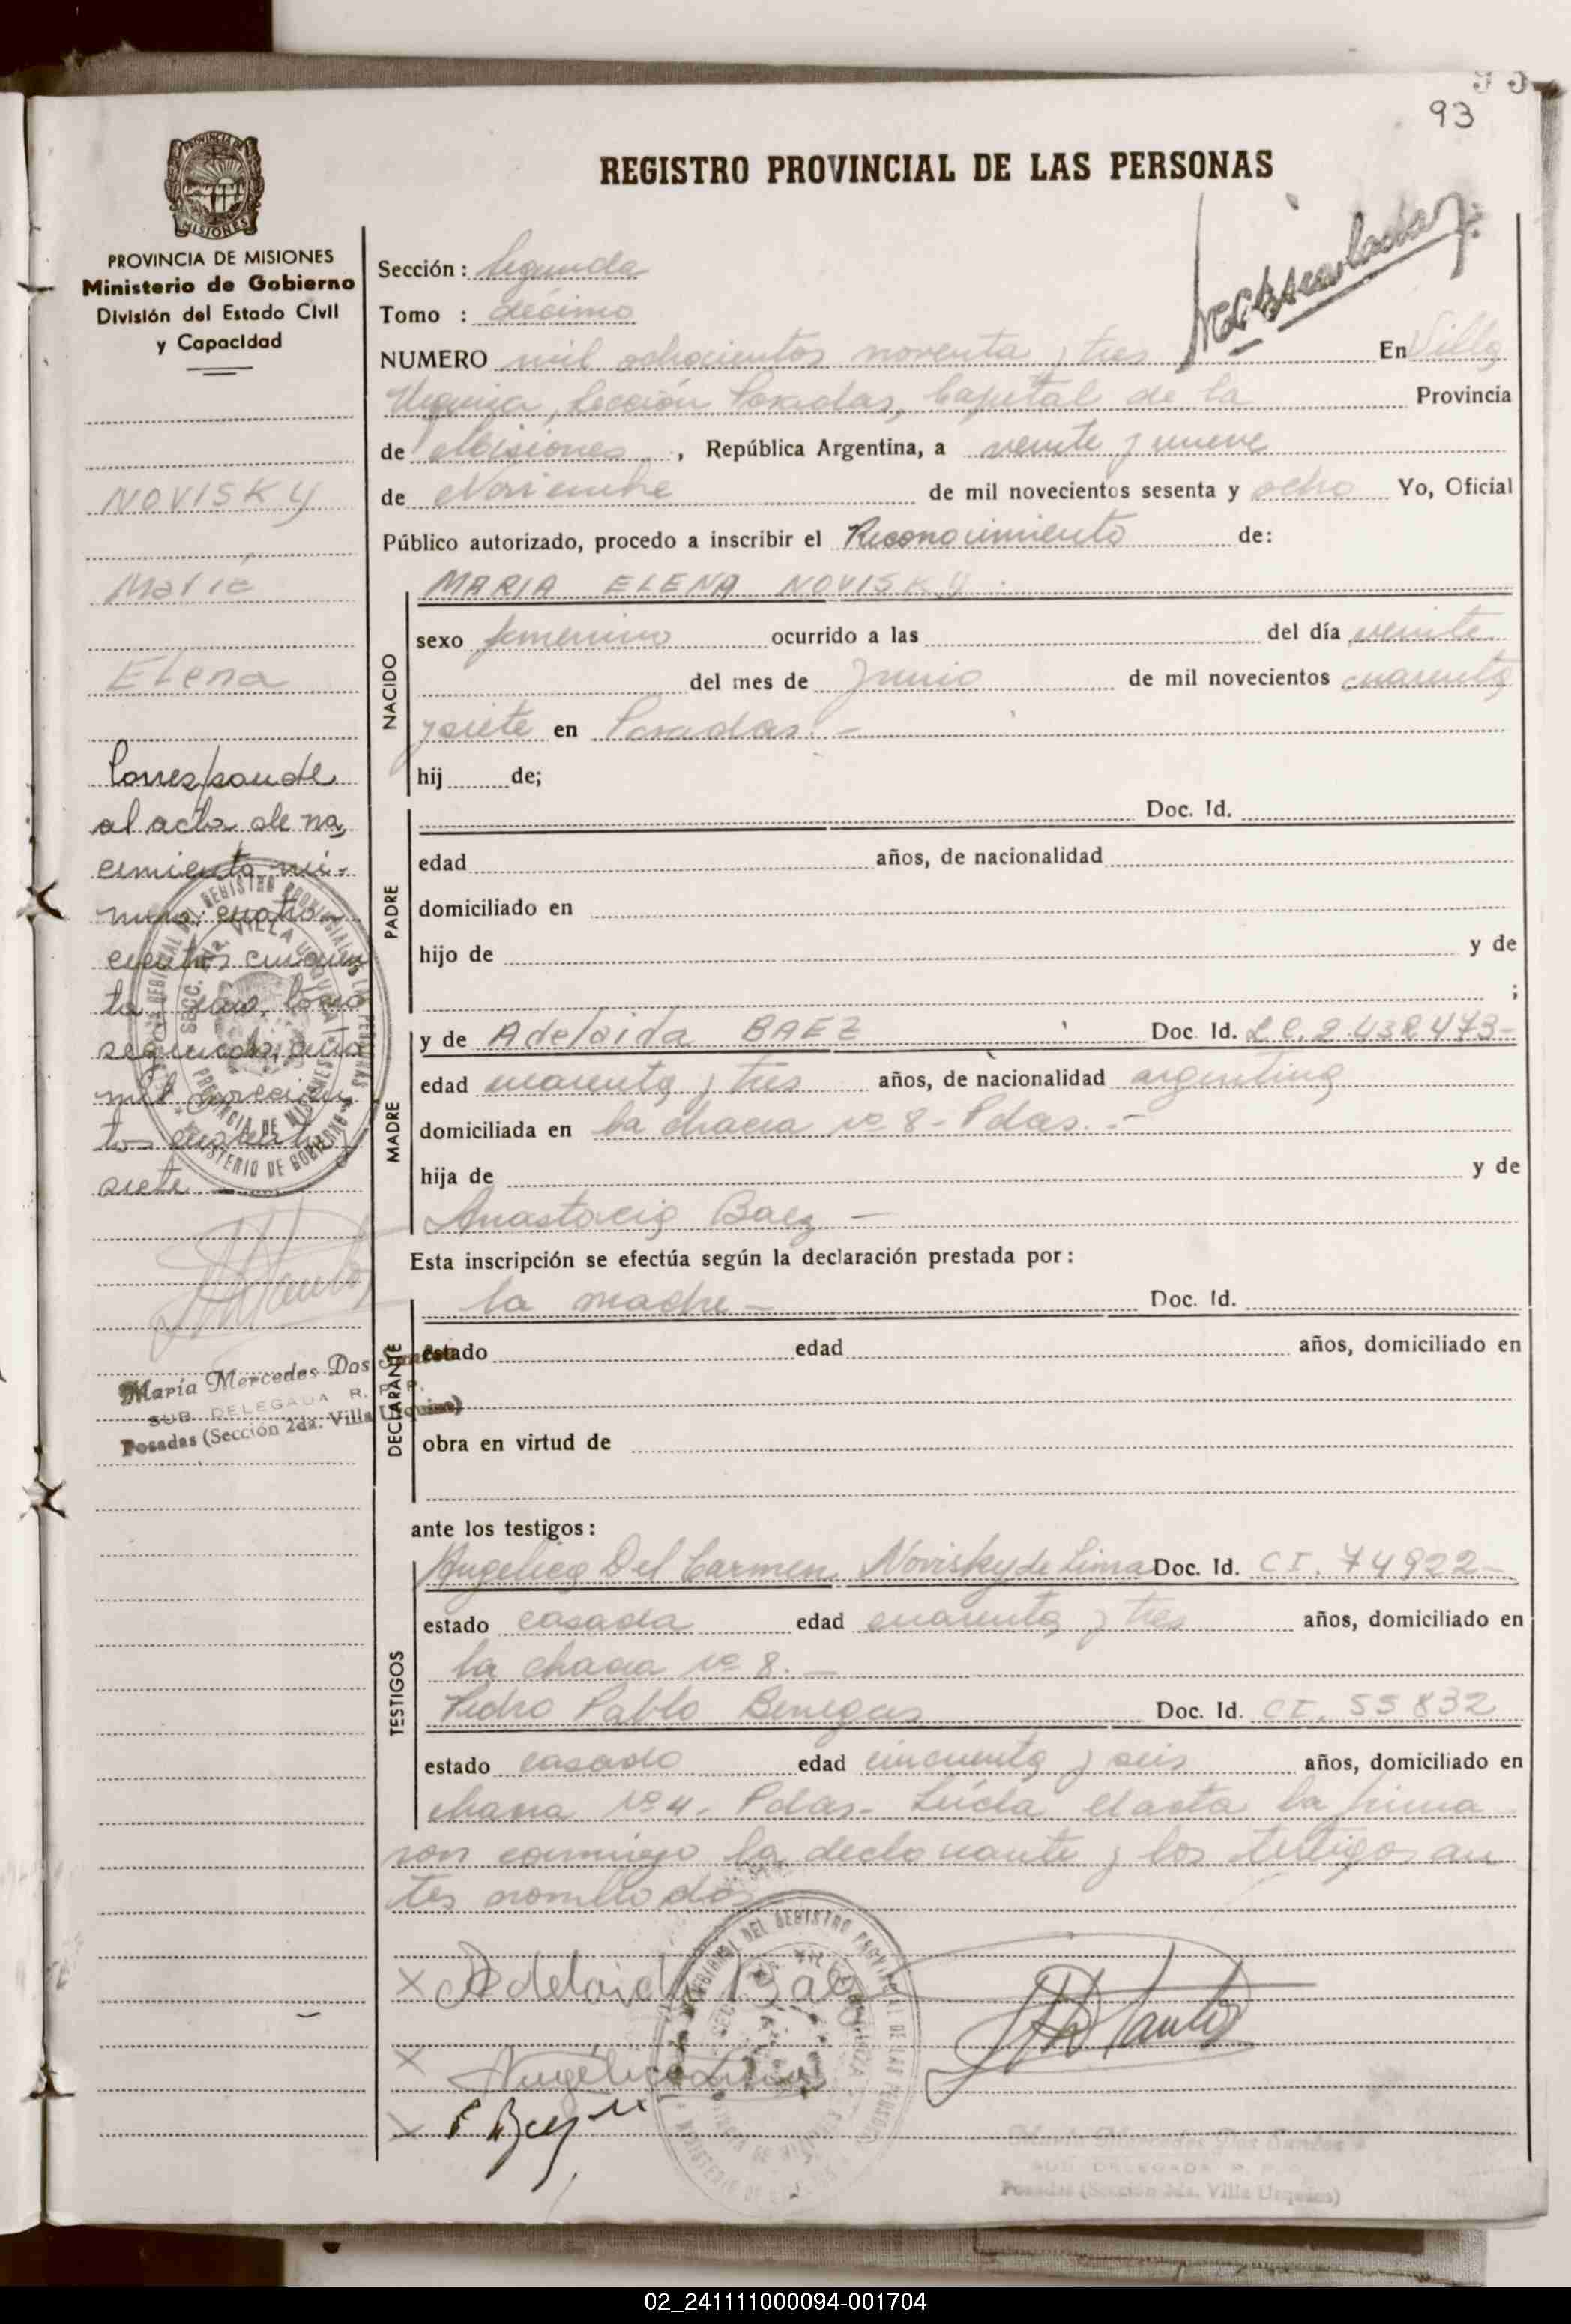 93
REGISTRO PROVINCIAL DE LAS PERSONAS
MISIONES
PROVINCIA DE MISIONES
Ministerio de Gobierno
División del Estado Civil
y Capacidad
Sección: Segunda
Tomo : décimo
NUMERO mil ochocientos noventa y tres En Villa
Urquiza, Sección Posadas, Capital de la Provincia
de Misiones, República Argentina, a veinte y nueve
de Noviembre de mil novecientos sesenta y ocho Yo, Oficial
Público autorizado, procedo a inscribir el Reconocimiento de:
NOVISKY
María
Elena
Corresponde
al acta de na
cimiento nú-
mero: cuatro
cientos cincuen
ta
segundo, año
mil novecien
tos cuarenta y
siete.
María Mercedes Dos Santos
SUB DELEGADA R. P. P.
Posadas (Sección 2da. Villa Urquiza)
NACIDO
MARIA ELENA NOVISKY.
sexo femenino ocurrido a las del día veinte
del mes de Junio de mil novecientos cuarenta
y siete en Posadas. -
hij de;
PADRE
Doc. Id.
edad años, de nacionalidad
domiciliado en
hijo de y de
;
MADRE
y de Adelaida BAEZ Doc. Id. L.C. 2.438.473-
edad cuarenta y tres años, de nacionalidad argentina
domiciliada en la chacra nº 8 - Pdas. -
hija de y de
Anastacia Baez -
Esta inscripción se efectúa según la declaración prestada por:
DECLARANTE
la madre - Doc. Id.
estado edad años, domiciliado en
obra en virtud de
ante los testigos:
TESTIGOS
Angelica Del Carmen Novisky de Lima Doc. Id. CI. 74922-
estado casada edad cuarenta y tres años, domiciliado en
la chacra nº 8. -
Pedro Pablo Benegas Doc. Id. CI. 55832
estado casado edad cincuenta y seis años, domiciliado en
chacra nº 4. Pdas- Leída el acta la firma
ron conmigo la declarante y los testigos an
tes nombrados
X Adelaida Baez
X Angélica Lima
X
María Mercedes Dos Santos
SUB DELEGADA R. P. P.
Posadas (Sección 2da. Villa Urquiza)
02_241111000094-001704